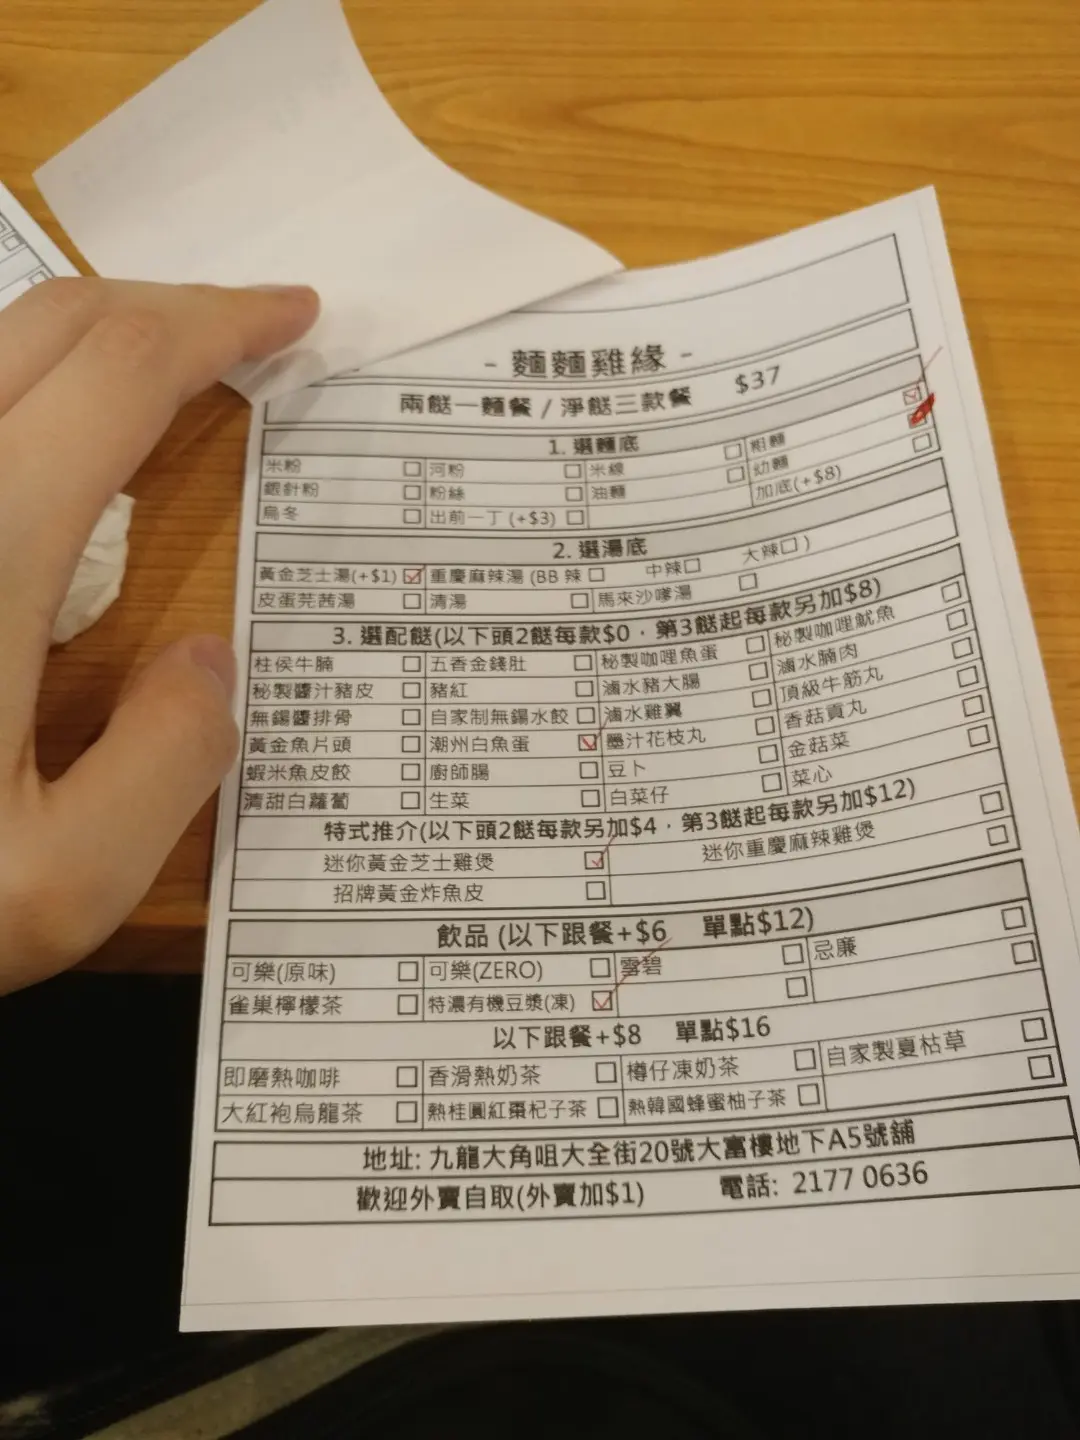 - 麵麵雞緣 -
兩餸一麵餐 / 淨餸三款餐 $37
1. 選麵底
米粉 河粉 米線 粗麵
銀針粉 粉絲 油麵 幼麵
烏冬 出前一丁 (+$3) 加底(+$8)
2. 選湯底
黃金芝士湯(+$1) 重慶麻辣湯 (BB 辣 中辣 大辣 )
皮蛋芫茜湯 清湯 馬來沙嗲湯
3. 選配餸(以下頭2餸每款$0，第3餸起每款另加$8)
柱侯牛腩 五香金錢肚 秘製咖哩魚蛋 秘製咖哩魷魚
秘製醬汁豬皮 豬紅 滷水豬大腸 滷水腩肉
無錫醬排骨 自家制無錫水餃 滷水雞翼 頂級牛筋丸
黃金魚片頭 潮州白魚蛋 墨汁花枝丸 香菇貢丸
蝦米魚皮餃 廚師腸 豆卜 金菇菜
清甜白蘿蔔 生菜 白菜仔 菜心
特式推介(以下頭2餸每款另加$4，第3餸起每款另加$12)
迷你黃金芝士雞煲 迷你重慶麻辣雞煲
招牌黃金炸魚皮
飲品 (以下跟餐+$6 單點$12)
可樂(原味) 可樂(ZERO) 雪碧 忌廉
雀巢檸檬茶 特濃有機豆漿(凍)
以下跟餐+$8 單點$16
即磨熱咖啡 香滑熱奶茶 樽仔凍奶茶 自家製夏枯草
大紅袍烏龍茶 熱桂圓紅棗杞子茶 熱韓國蜂蜜柚子茶
地址: 九龍大角咀大全街20號大富樓地下A5號舖
歡迎外賣自取(外賣加$1) 電話: 2177 0636